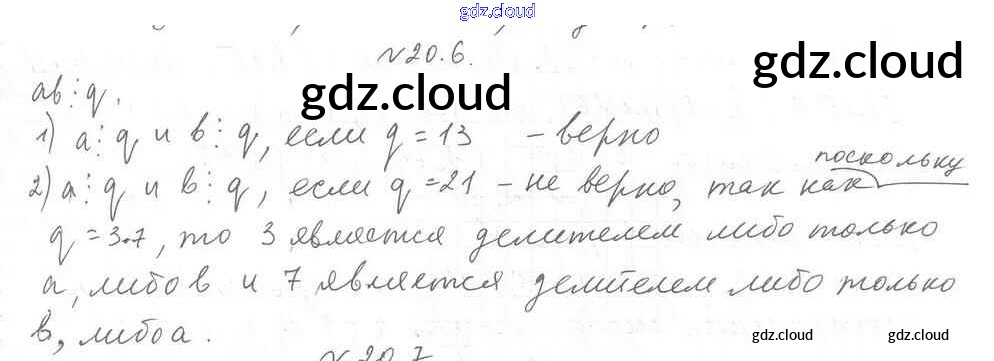 gdz.cloud
№20.6.
gdz.cloud
gdz.cloud
ab⋮q.
1) a⋮q и b⋮q, если q=13 – верно
поскольку
2) a⋮q и b⋮q, если q=21 – не верно, так как
q=3·7, то 3 является делителем либо только
a, либо b и 7 является делителем либо только
b, либо a.
gdz.cloud
gdz.cloud
№20.7